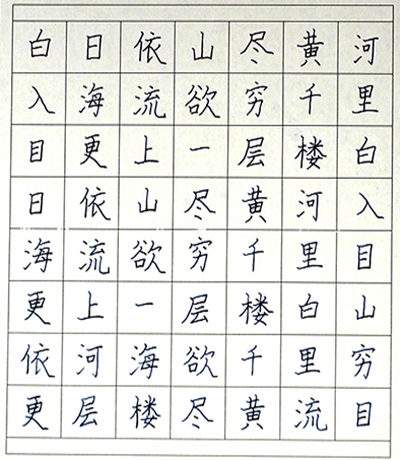 白日依山尽黄河
入海流欲穷千里
目更上一层楼白
日依山尽黄河入
海流欲穷千里目
更上一层楼白山
依河海欲千里穷
更层楼尽黄流目